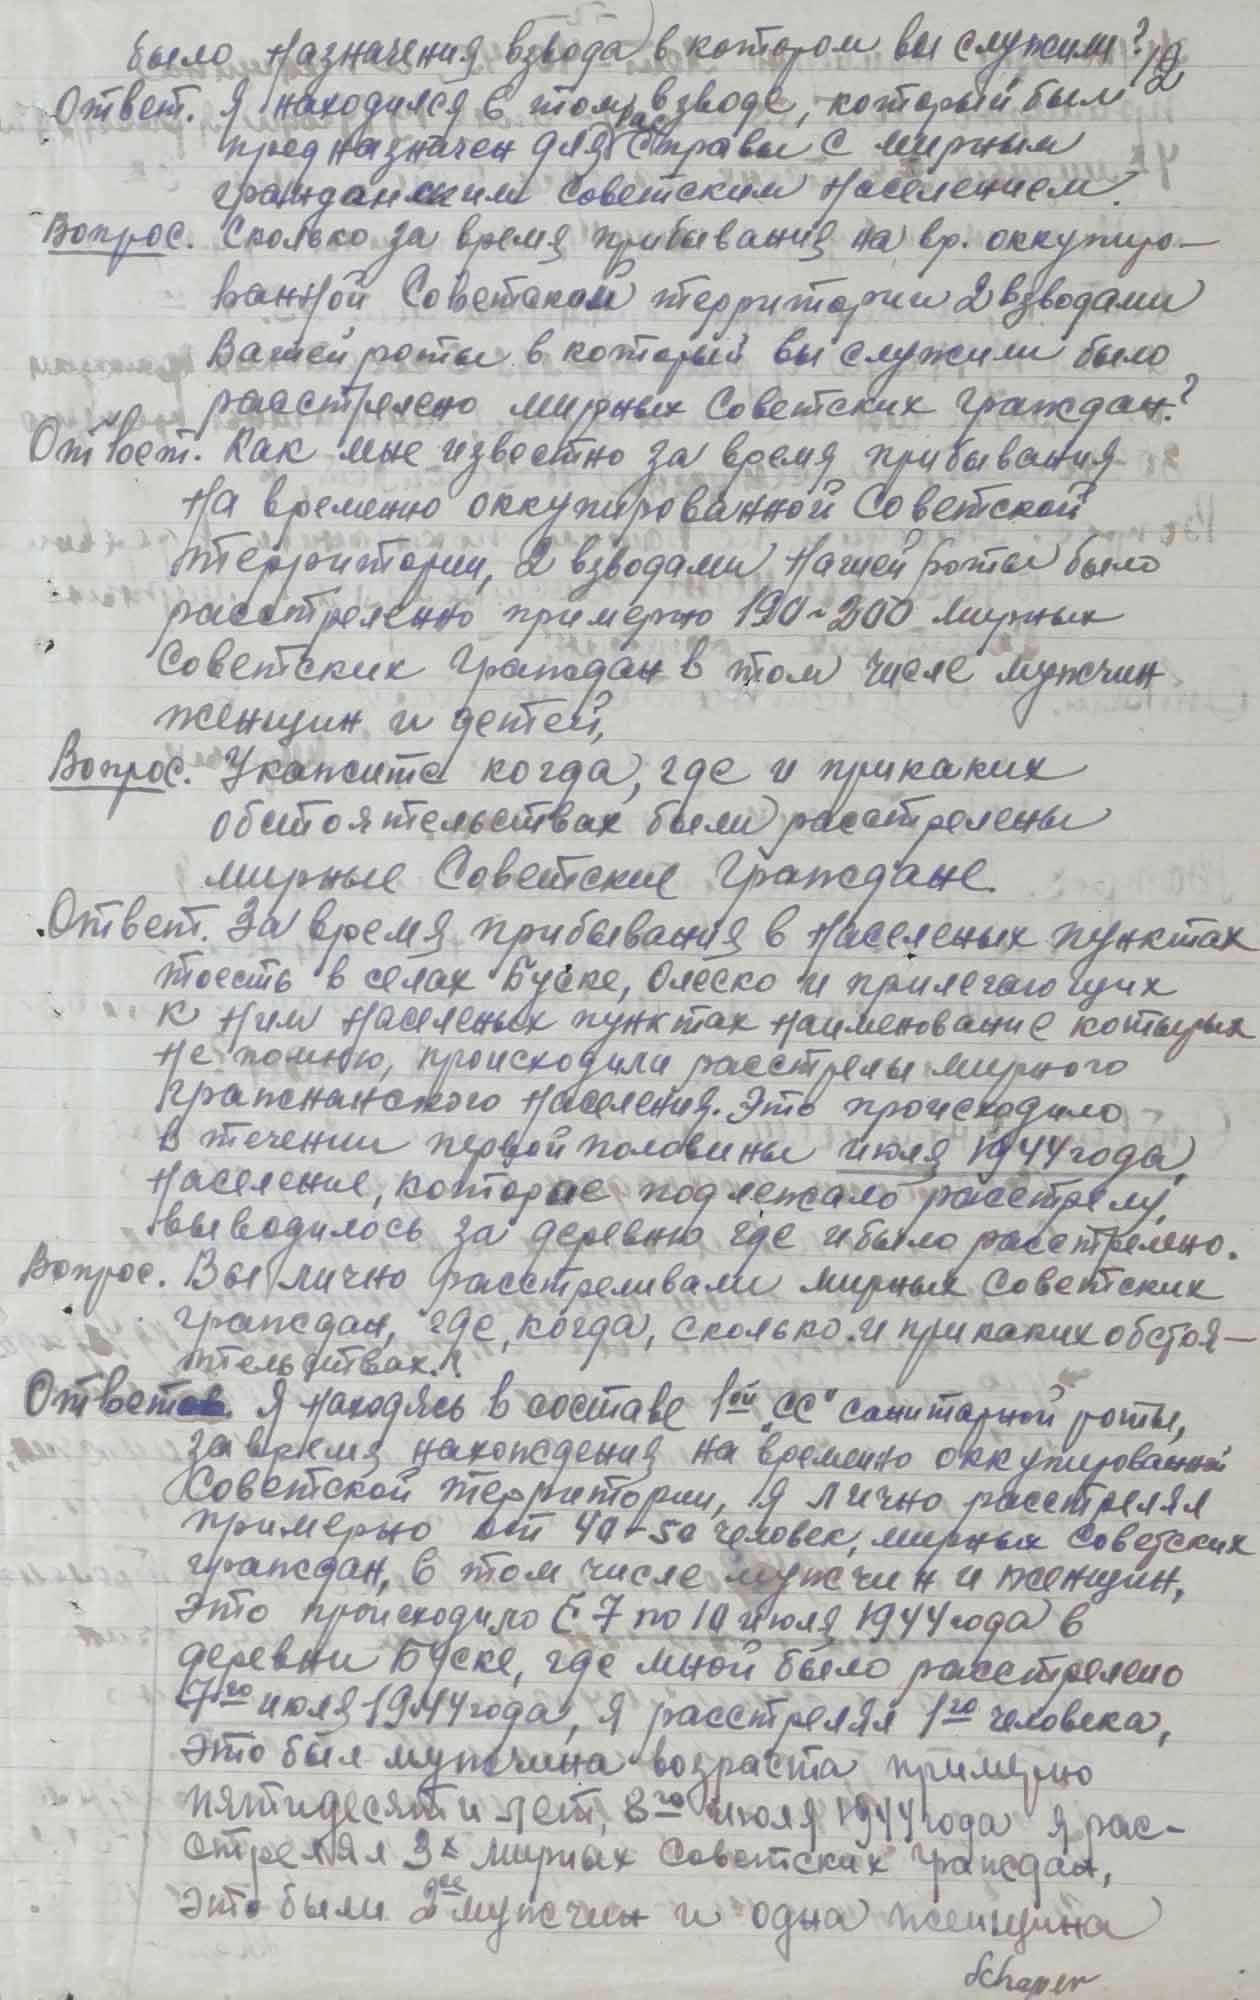 было назначения взвода в котором вы служили?
12
Ответ. Я находился в том взводе, который был
предназначен для расправы с мирным
гражданским советским населением.
Вопрос. Сколько за время прибывания на вр. оккупиро-
ванной Советской территории 2 взводами
Вашей роты в который вы служили было
расстрелено мирных Советских граждан?
Ответ. Как мне известно за время прибывания
на временно оккупированной Советской
территории, 2 взводами нашей роты было
расстреленно примерно 190-200 мирных
Советских граждан в том числе мужчин
женщин и детей,
Вопрос. Укажите когда, где и прикаких
обстоятельствах были расстрелены
мирные Советские граждане.
Ответ. За время прибывания в населеных пунктах
тоесть в селах Буске, Олеско и прилегающих
к ним населеных пунктах наименование которых
не помню, происходили расстрелы мирного
гражнанского населения. Это происходило
в течении первой половины июля 1944 года,
Население, которое подлежало расстрелу,
выводилось за деревню где ибыло расстрелено.
Вопрос. Вы лично расстреливали мирных Советских
граждан, где, когда, сколько и прикаких обстоя-
тельствах.?
Ответ. Я находясь в составе 1ой „СС" санитарной роты,
завремя нахождения на временно оккупированной
Советской территории, я лично расстрелял
примерно от 40-50 человек, мирных Советских
граждан, в том числе мужчин и женщин,
Это происходило с 7 по 10 июля 1944 года в
деревни Буске, где мной было расстрелено
7го июля 1944 года, я расстрелял 1го человека,
Это был мужчина возраста примерно
пятидесяти лет, 8го июля 1944 года я рас-
стрелял 3х мирных Советских граждан,
это были 2ое мужчин и одна женщина
Schaper